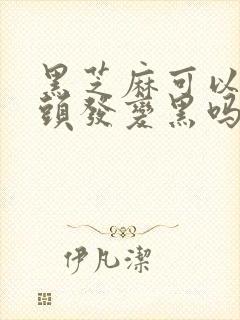 黑芝麻可以
頭發變黑吗
伊凡潔